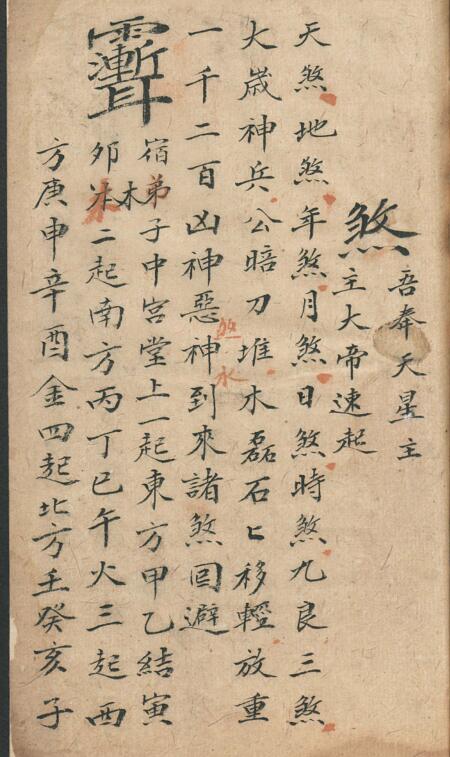 煞
吾奉天星主
主大帝速起
天煞地煞年煞月煞日煞時煞九良三煞
大歲神兵公暗刀堆木磊石匕移輕放重
一千二百凶神惡神到來諸煞囘避
煞水
宿弟子中宮堂上一起東方甲乙結寅
卯木二起南方丙丁巳午火三起西
方庚申辛酉金四起北方壬癸亥子